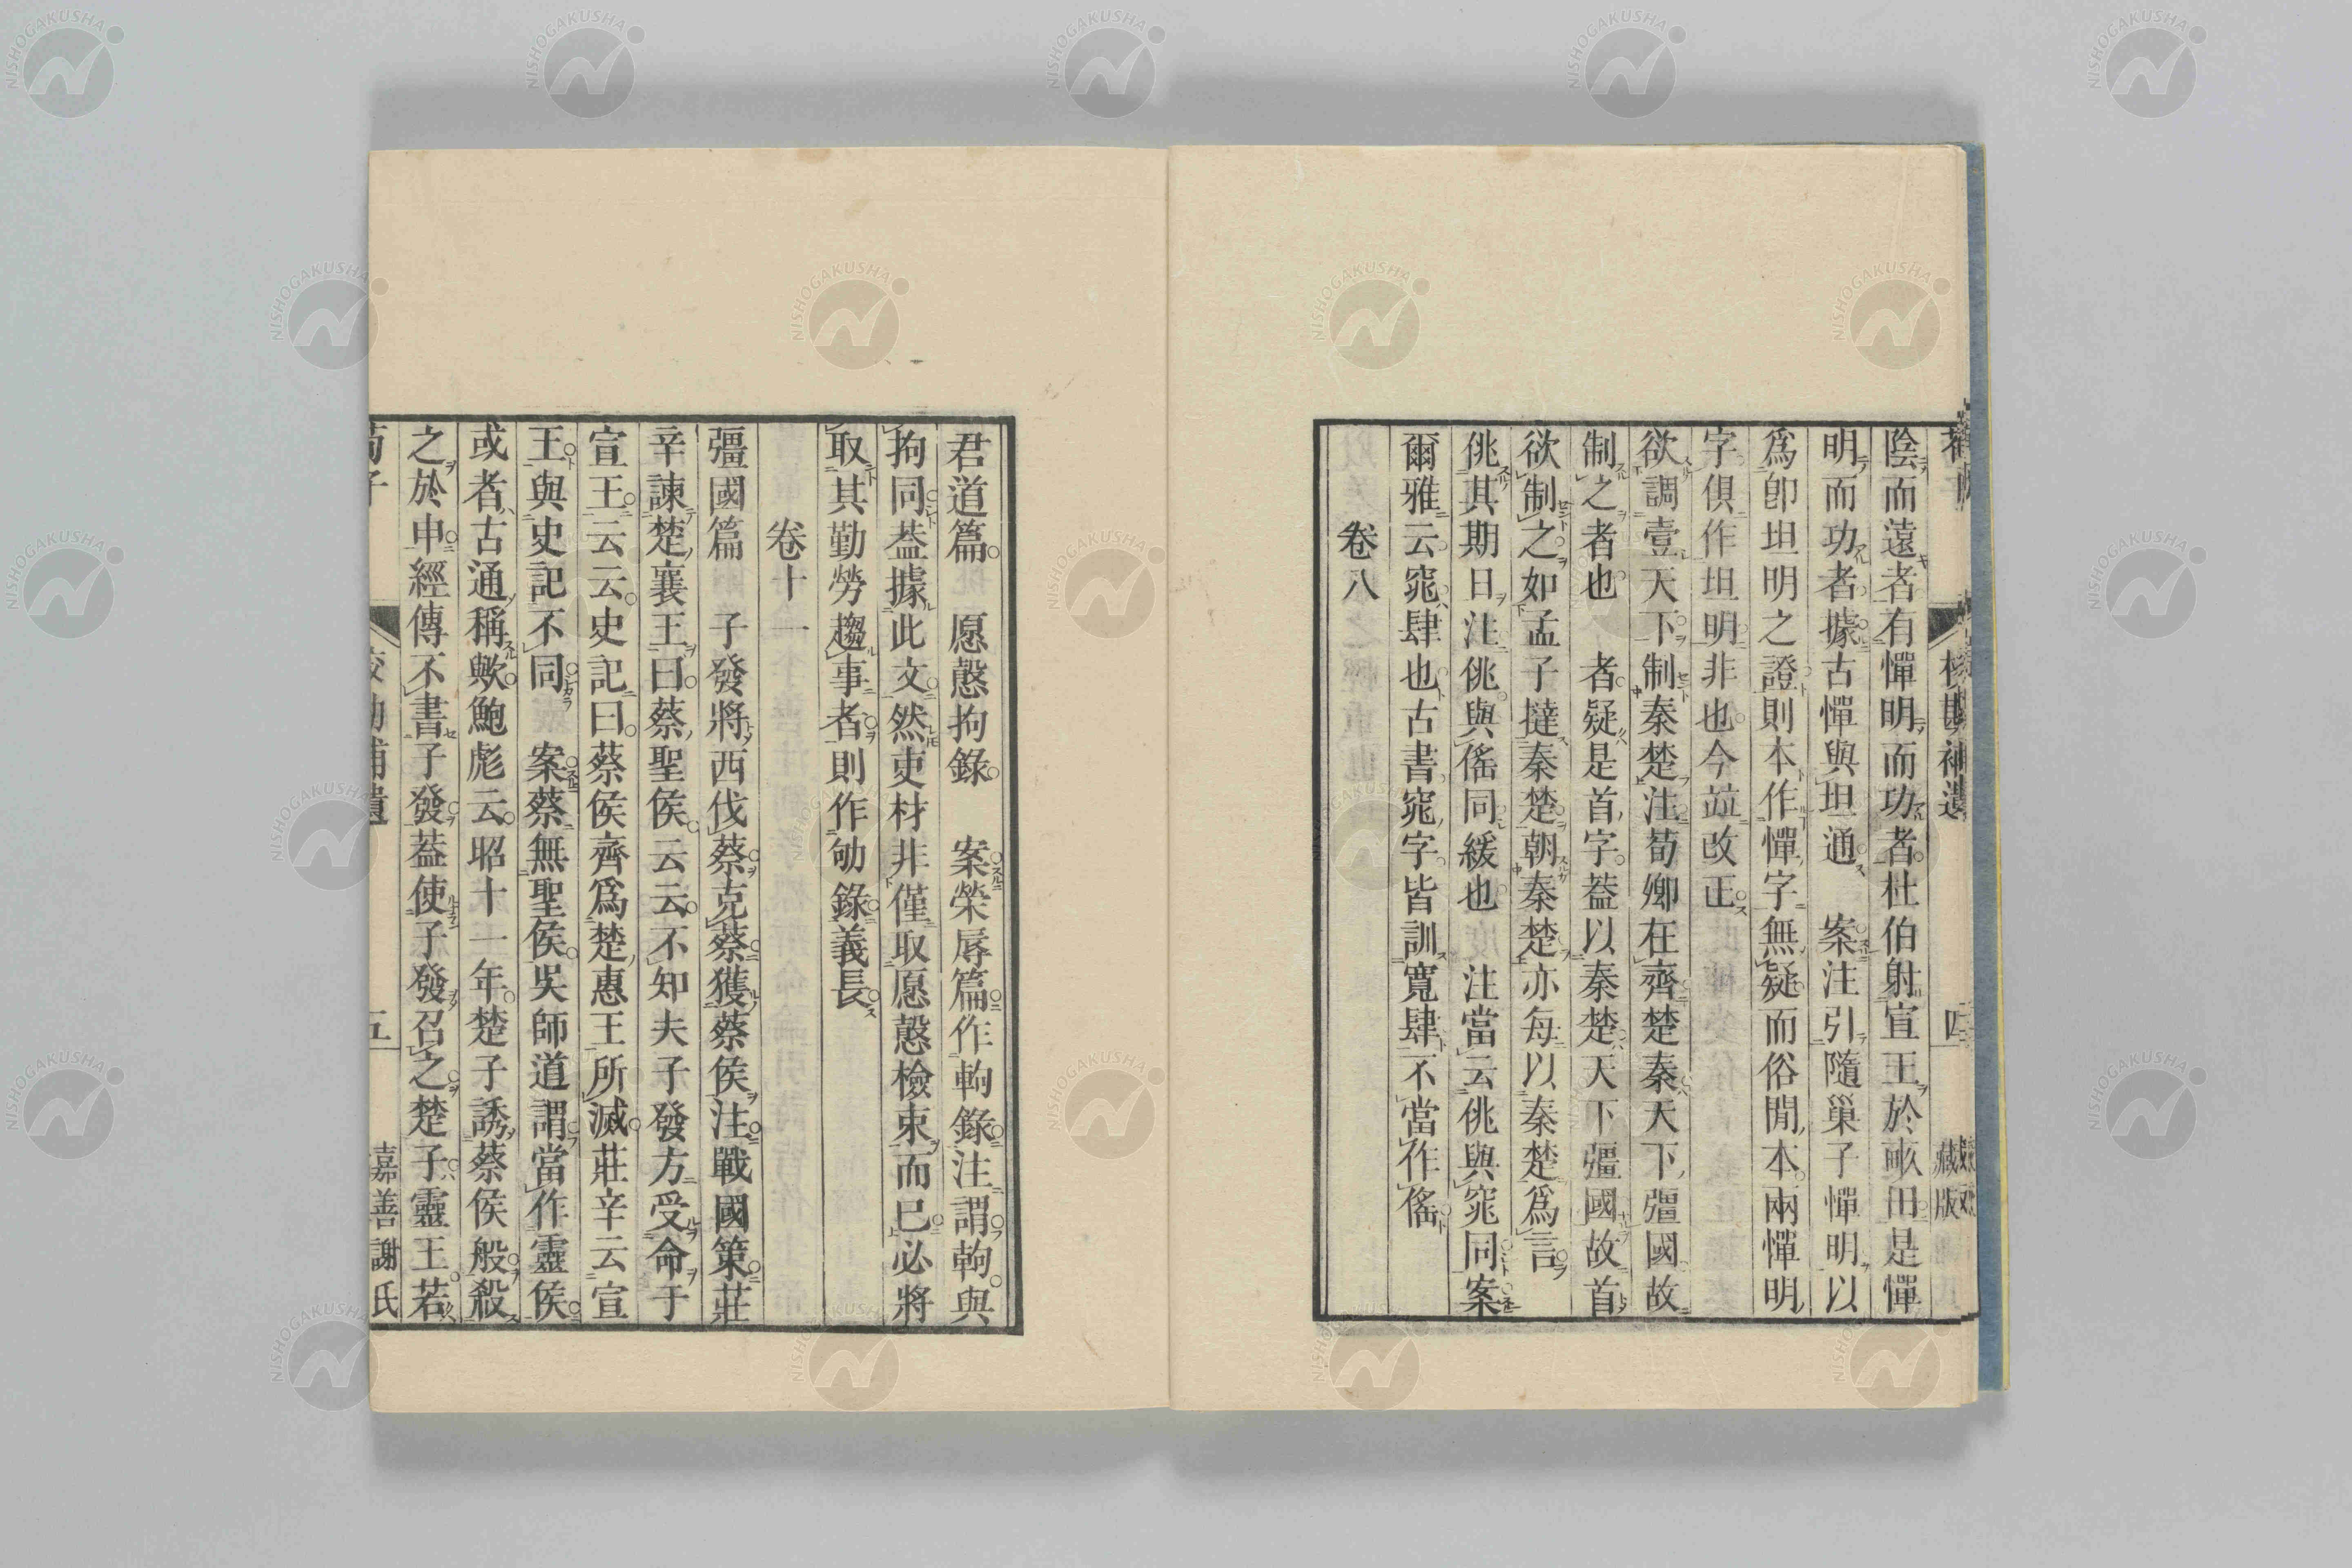 陰而遠者有憚明而功者杜伯射宣王於畝田是憚
明而功者據古憚與坦通　案注引隨巢子憚明以
爲卽坦明之證則本作憚字無疑而俗閒本兩憚明
字俱作坦明非也今竝改正
欲調壹天下制秦楚注荀卿在齊楚秦天下彊國故
制之者也　者疑是首字葢以秦楚天下彊國故首
欲制之如孟子撻秦楚朝秦楚亦每以秦楚爲言
佻其期日注佻與傜同緩也　注當云佻與窕同案
爾雅云窕肆也古書窕字皆訓寬肆不當作傜
卷八
君道篇　愿愨拘錄　案榮辱篇作軥錄注謂軥與
拘同葢據此文然吏材非僅取愿愨檢束而已必將
取其勤勞趨事者則作劬錄義長
卷十一
彊國篇　子發將西伐蔡克蔡獲蔡侯注戰國策莊
辛諫楚襄王曰蔡聖侯云云不知夫子發方受命于
宣王云云史記曰蔡侯齊爲楚惠王所滅莊辛云宣
王與史記不同　案蔡無聖侯吳師道謂當作靈侯
或者古通稱歟鮑彪云昭十一年楚子誘蔡侯般殺
之於申經傳不書子發葢使子發召之楚子靈王若
荀子 校勘補遺 五 嘉善謝氏
四 藏版
NISHOGAKUSHA